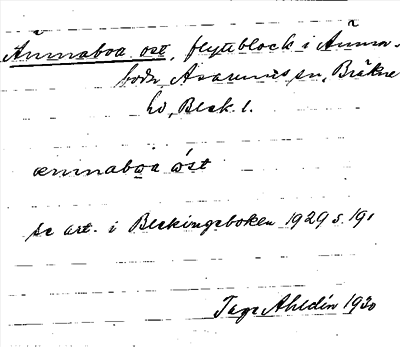 Ämnaboa ost, flyttblock i Ämna-
boda Asarums sn, Bräkne
hd, Blek. l.
æmnaboa óst
se art. i Blekingeboken 1929 s. 191
Tage Ahldin 1930